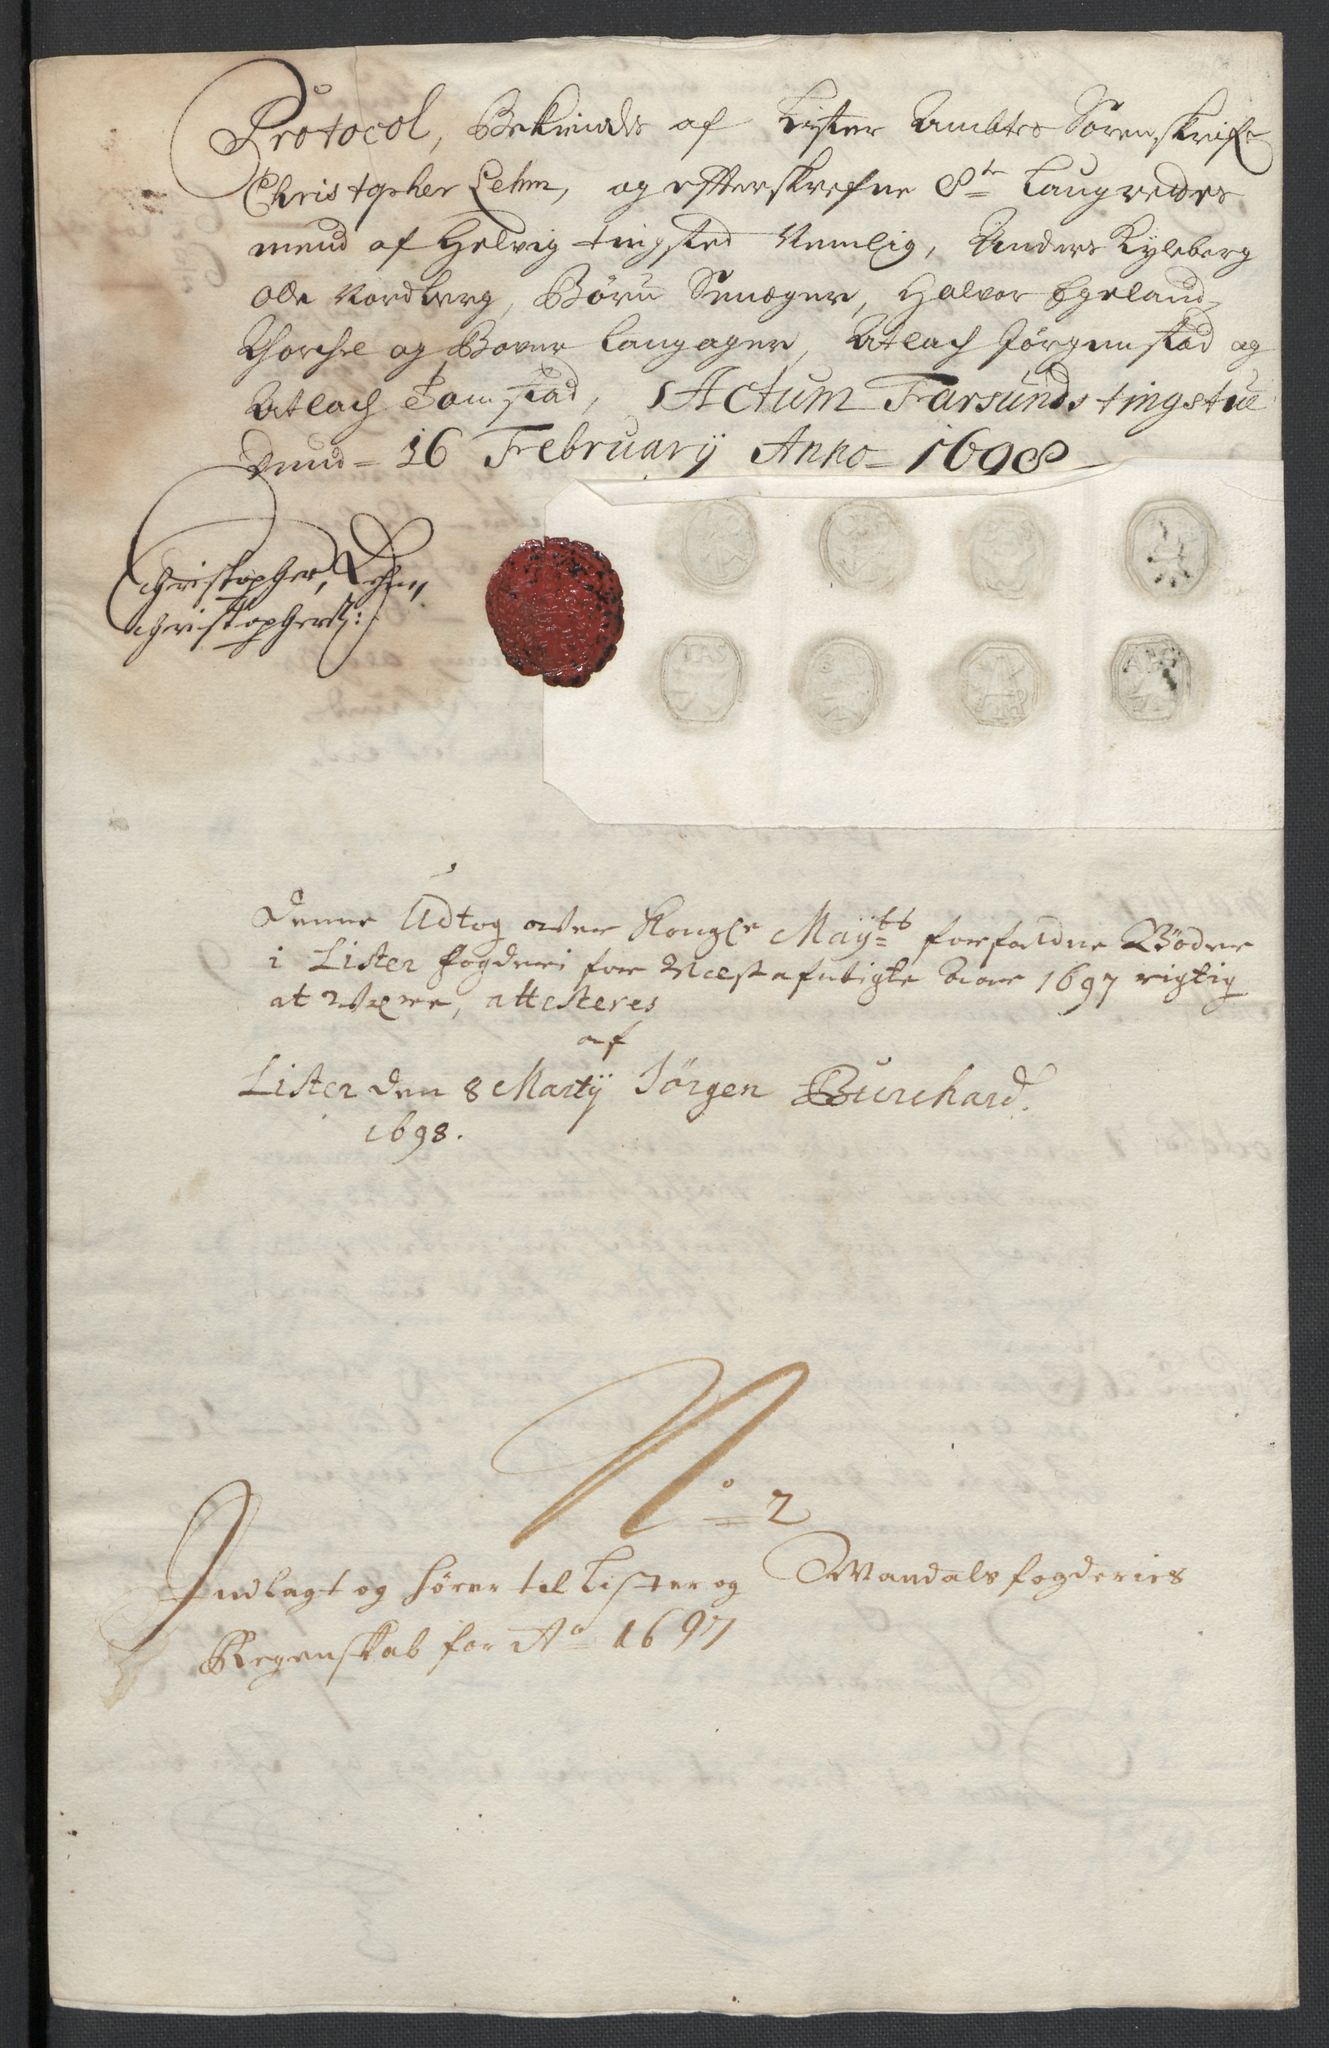 Protocol, Bekiendes af Lister Ambtes Sorenskrifr
Christopher Lehm, og efterskrefne 8te Laugrettes
mend af Helvig tingsted Nemlig, Anders Kyleberg
Ole Nordberg, Børu Snæger, Halvor Egeland,
Thorchel og Barur Langager, Atlach Jørgenstad og
Atlach Tomstad, Actum Farsunds tingstue
dend 16 February Anno 1698
Christopher, Lehm,
Christophers:
IAS
Denne Udtog over Kongl Mayts forfaldne Bøder
i Lister fogderi for Næstafvigte Aar 1697 rigtig
at være, attesteres
af
Lister den 8 Martij Jørgen Burchard.
1698.
No 2
Indlagt og hører til Lister og Mandals fogderies
Regenskab for Ao 1697